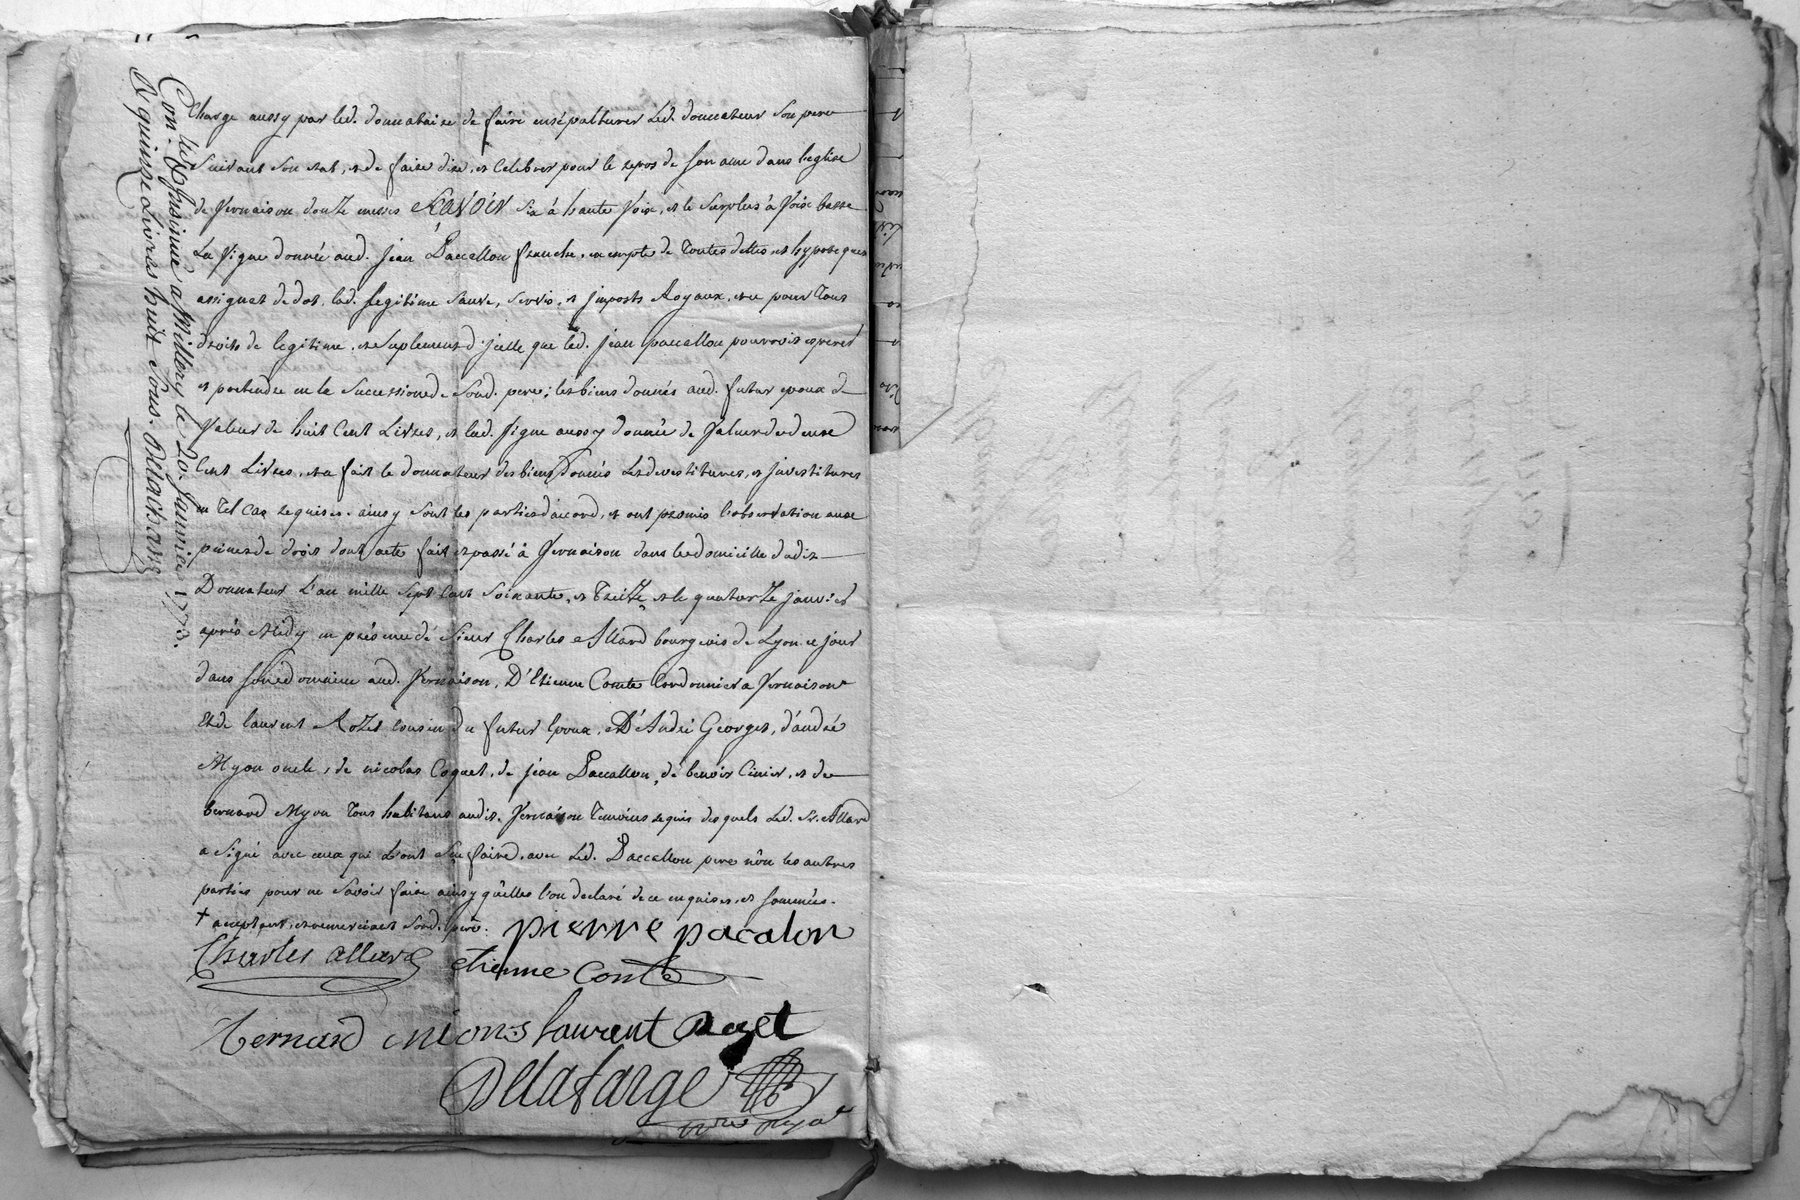 Charge aussy par led. donnataire de faire ensépulturer Led. donnateur Son pere
Suivant Son etat, et de faire dire, et Celebrer pour le repos de Son ame dans leglise
de Vernaison douze messes SCAVOIR Six à haute Voix, et le Surplus à Voix basse
La Vigne donnée aud. Jean Paccallon franche, en compte de Toutes dettes et hypoteques
assignat de dot, lad. Legitime Sauve, Servis, et Imposts Royaux, et ce pour Tous
droits de legitime, et Suplement d'Jcelle que led. Jean paccallon pourroit esperer
et pretendre en la Succession de Sond. pere; les biens donnés aud. futur epoux de
Valeur de huit Cent Livres, et lad. Vigne aussy donnée de Valeur de deux
Cent Livres, et a fait le donnateur des biens Donnés Les devestitures, et Jnvestitures
en Tel Cas requises. ainsy Sont les parties d'accord, et ont promis l'observation aux
peines de droit dont acte fait et passé à Vernaison dans le domicille dudit
Donnateur L'an mille Sept Cent Soixante, et Treize, et le quatorze janvier
après Midy en présence de Sieur Charles Allard bourgeois de Lyon ce jour
dans Son domaine aud. Vernaison, D'Etienne Comte Cordonnier a Vernaison
Et de laurent Rozet cousin du futur Epoux, D'André Georges, d'andré
Myon oncle, de nicolas Coquet, de Jean Paccallon, de benoit Cinier, et de
bernard Myon Tous habitans audit. Vernaison Temoins requis desquels Led. Sr. Allard
a Signé avec ceux qui L'ont Sçu faire, avec Led. Paccallon pere nôn les autres
parties pour ne Savoir faire ainsy qu'elles l'on declaré de ce enquises, et sommées.
+ acceptant, et remerciant Sond. pere. pierre pacalon
Charles allard etienne Conte
bernard mions laurent Rozet
Dellafarge
Con.lé & Insinué a Millery le 20. Janvier 1773.
R quinze Livres huit Sous. Dellafarge